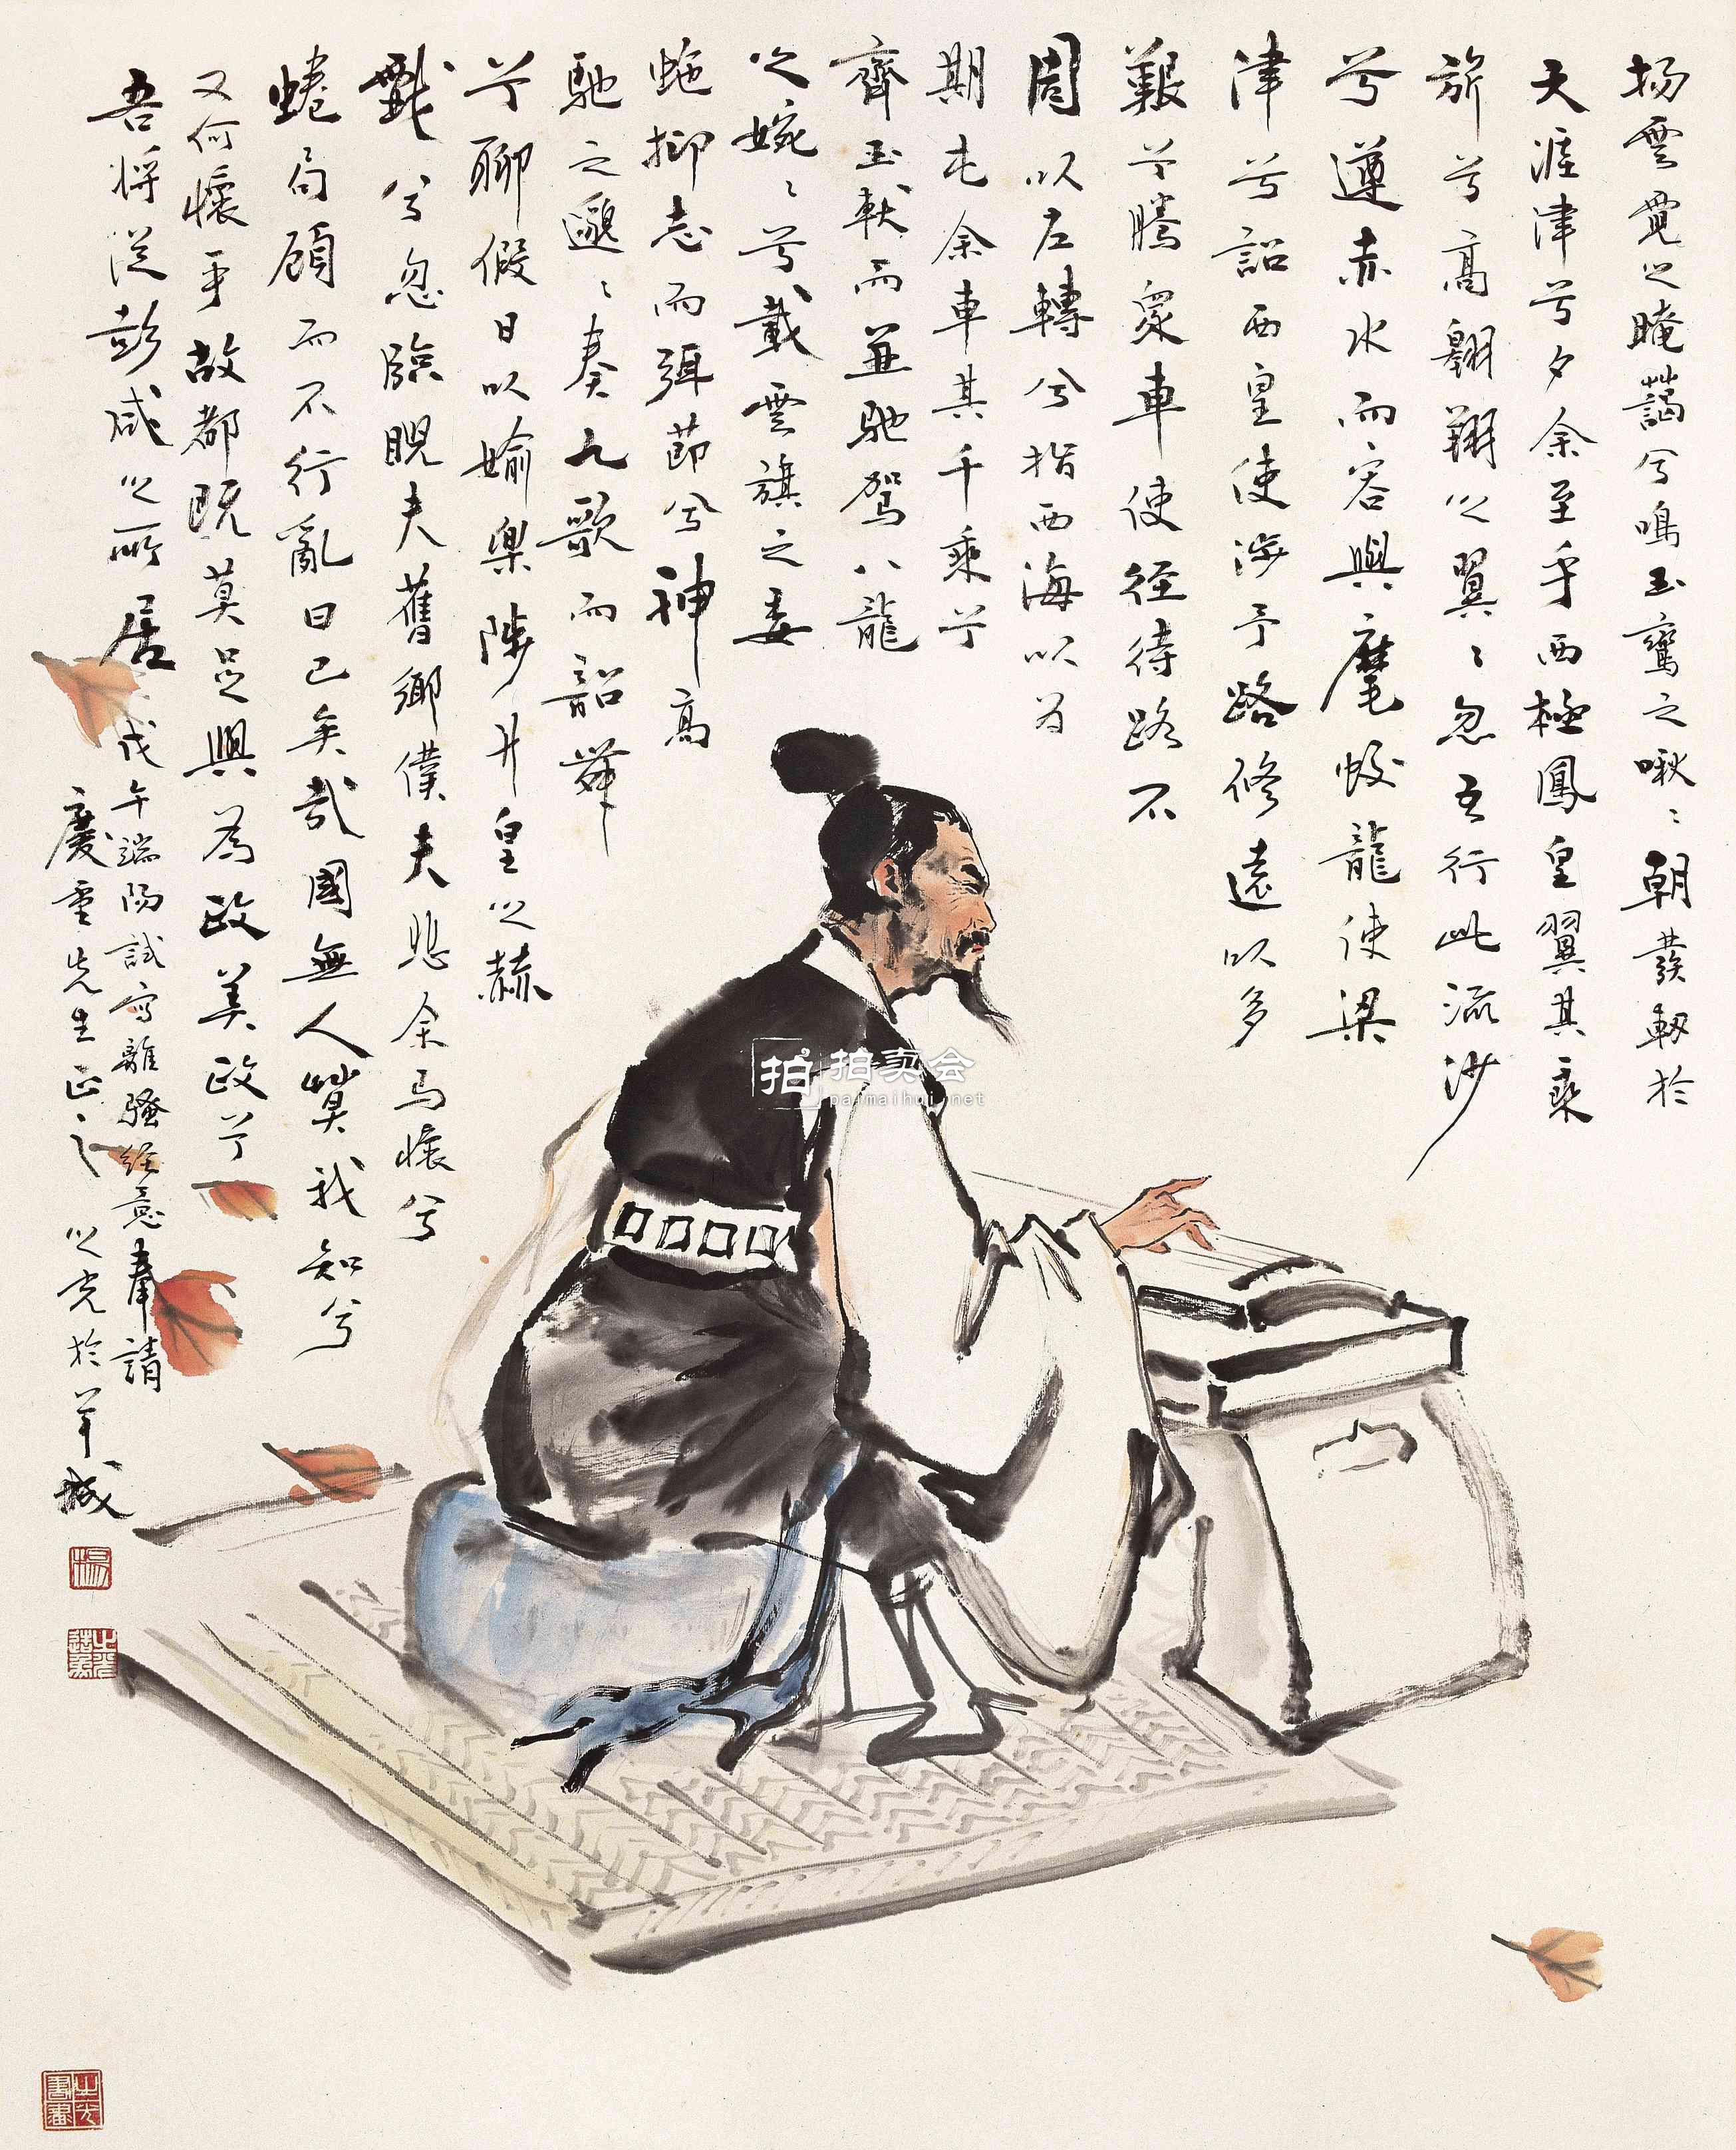 扬雲霓之晻藹兮鳴玉鸞之啾〻朝發軔於
天津兮夕余至乎西極鳳皇翼其乘
旂兮高翱翔之翼〻忽吾行此流沙
兮遵赤水而容與麾蛟龍使梁
津兮詔西皇使涉予路修遠以多
艱兮騰衆車使徑待路不
周以左轉兮指西海以為
期屯余車其千乘兮
齊玉軑而並馳駕八龍
之婉〻兮載雲旗之委
蛇抑志而弭節兮神高
馳之邈〻奏九歌而韶舞
兮聊假日以媮樂陟升皇之赫
戲兮忽臨睨夫舊鄉僕夫悲余马懷兮
蜷局顧而不行亂曰已矣哉國無人莫我知兮
又何懷乎故都既莫足與為政美政兮
吾將從彭咸之所居
戊午端陽試寫離騷經意奉請
慶重先生正之 之光於羊城
楊
之光
拍 拍卖会
paimaihui.net
之光書畫